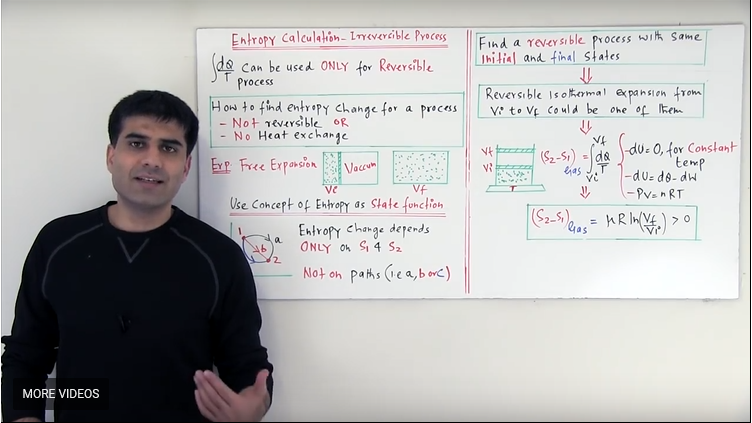 Entropy Calculation - Irreversible Process
∫dQ/T Can be used ONLY for Reversible
process
How to find entropy change for a process
- Not reversible OR
- No Heat exchange
Exp: Free Expansion
Vaccum
Vi
Vf
Use Concept of Entropy as State function
1
a
b
2
Entropy Change depends
ONLY on S1 & S2
Not on paths (i.e a, b or c)
Find a reversible process with same
Initial and final States
Reversible isothermal expansion from
Vi to Vf could be one of them
Vf
Vi
T
(S2-S1)gas = ∫Vi Vf dQ/T
- dU=0, for Constant
temp
- dU = dQ - dW
- PV = nRT
(S2-S1)gas = nR ln(Vf/Vi) > 0
MORE VIDEOS